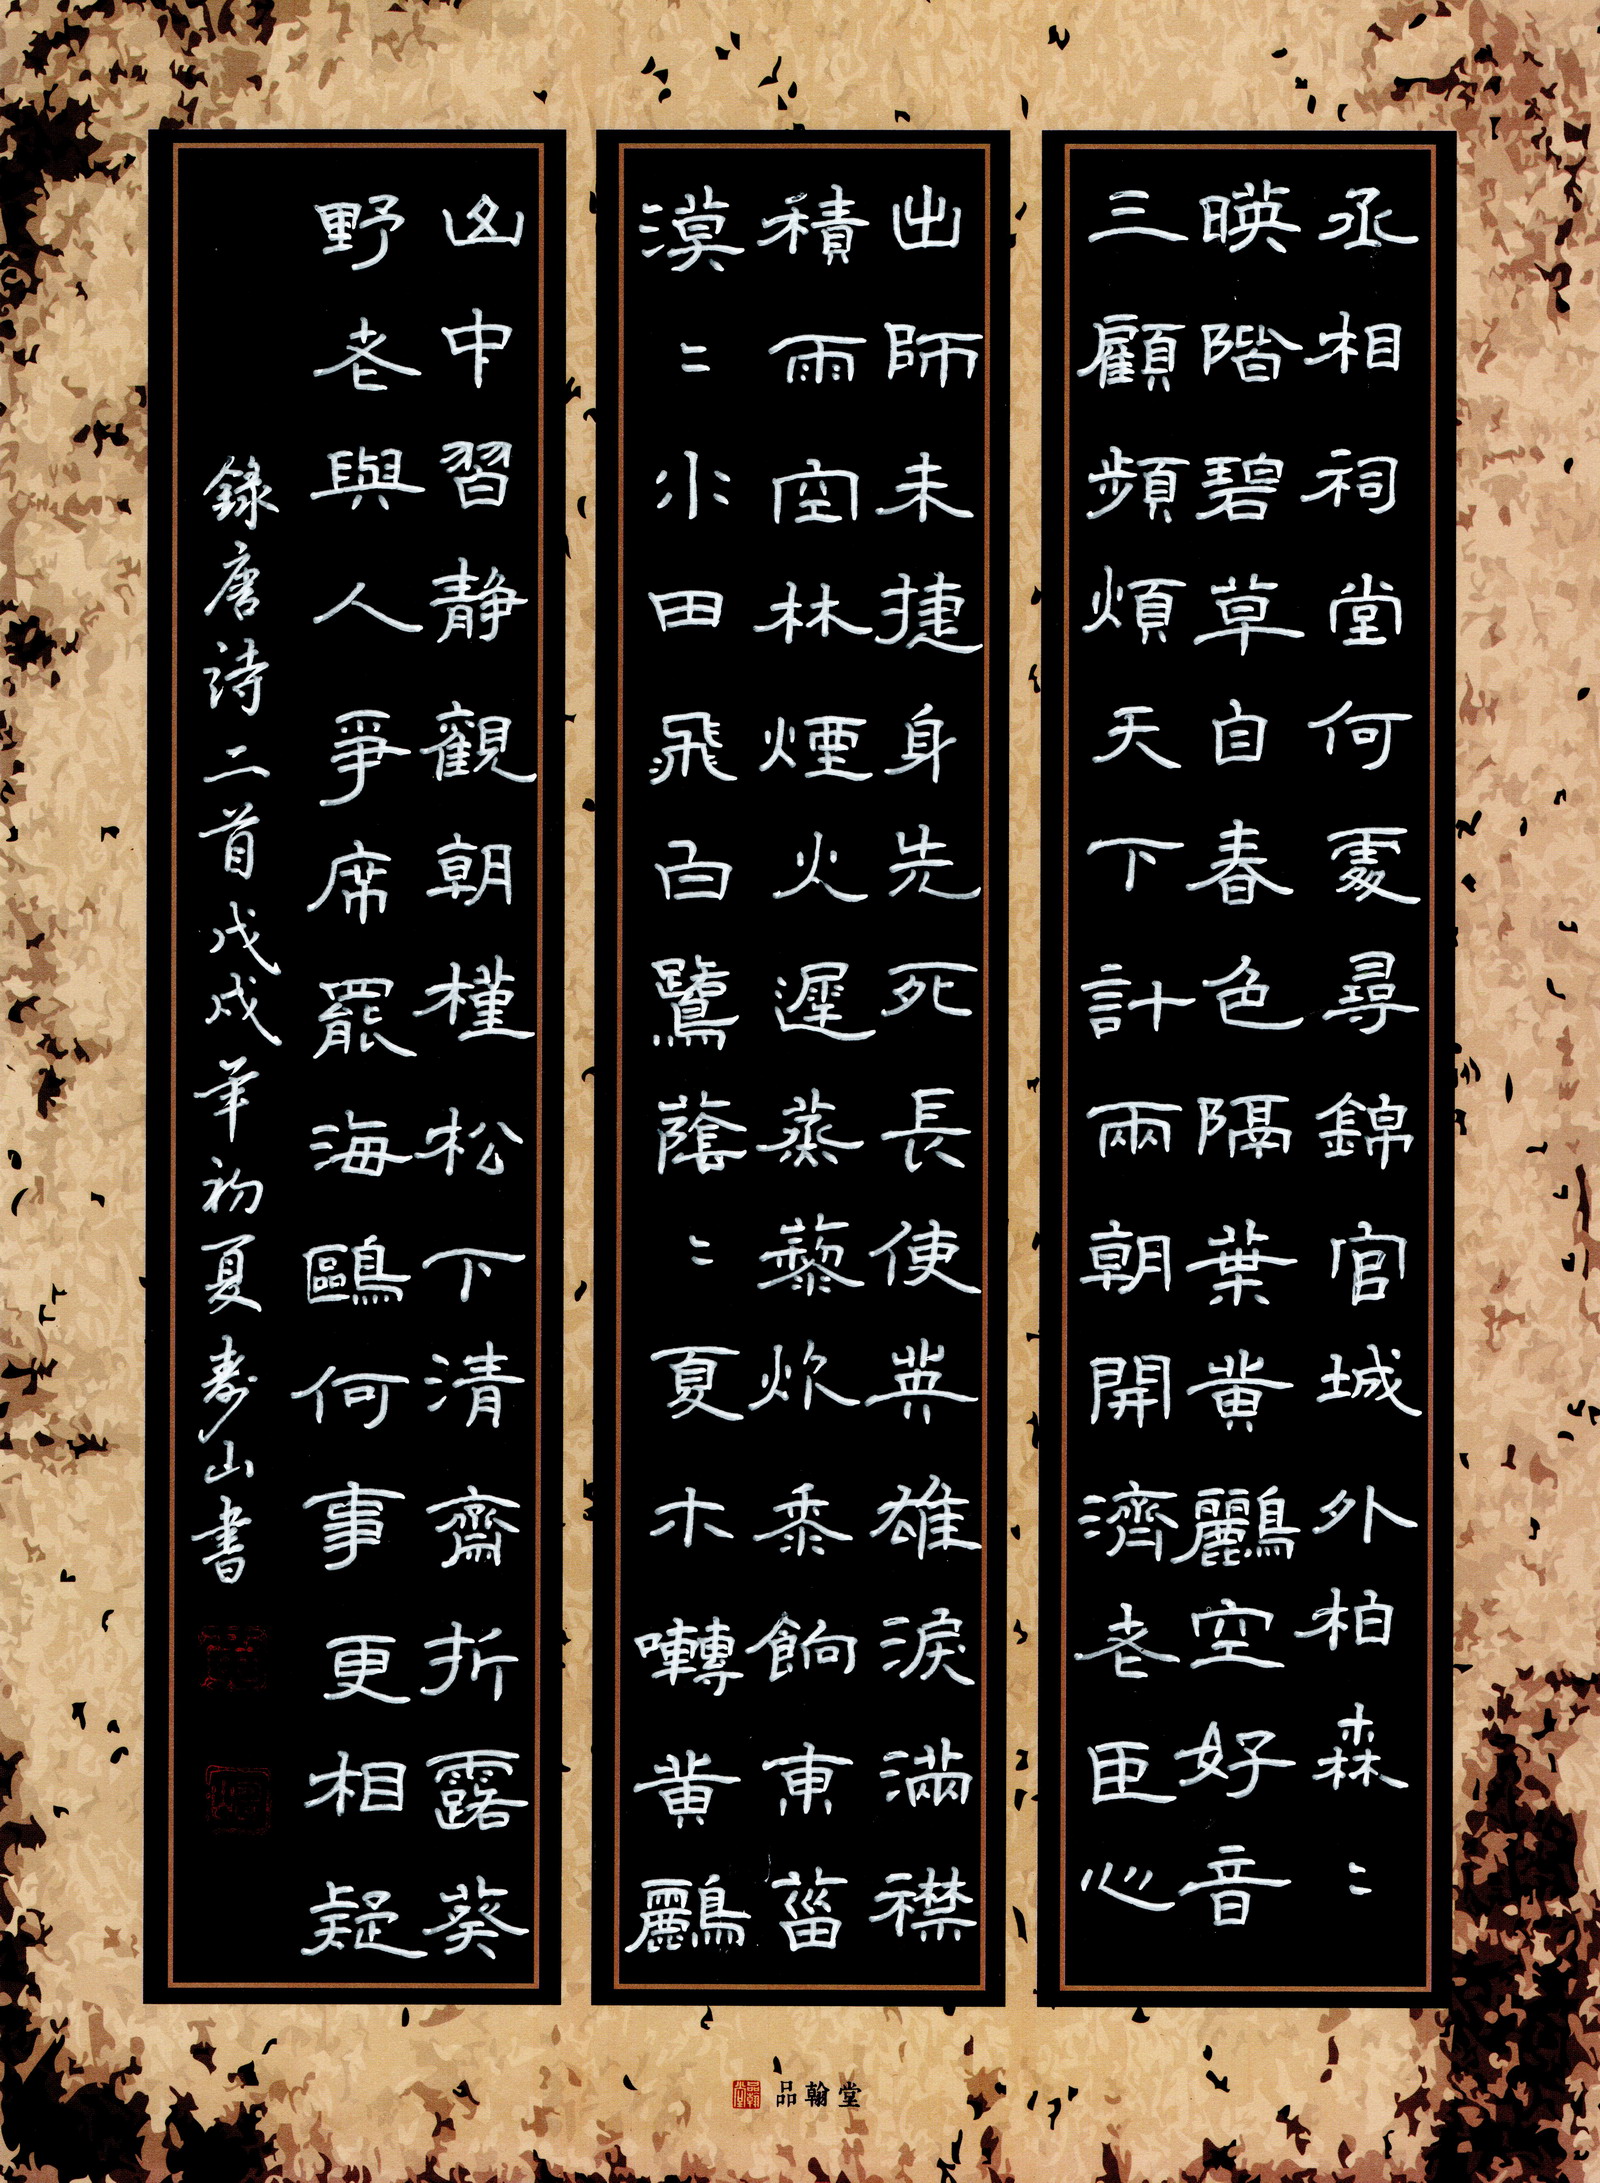 丞相祠堂何處尋錦官城外柏森〻
暎階碧草自春色隔葉黄鸝空好音
三顧頻煩天下計兩朝開濟老臣心
出師未捷身先死長使英雄淚滿襟
積雨空林煙火遲蒸藜炊黍餉東菑
漠〻水田飛白鷺蔭〻夏木囀黄鸝
山中習靜觀朝槿松下清齋折露葵
野老與人爭席罷海鷗何事更相疑
錄唐詩二首戊戌年初夏壽山書
品翰堂